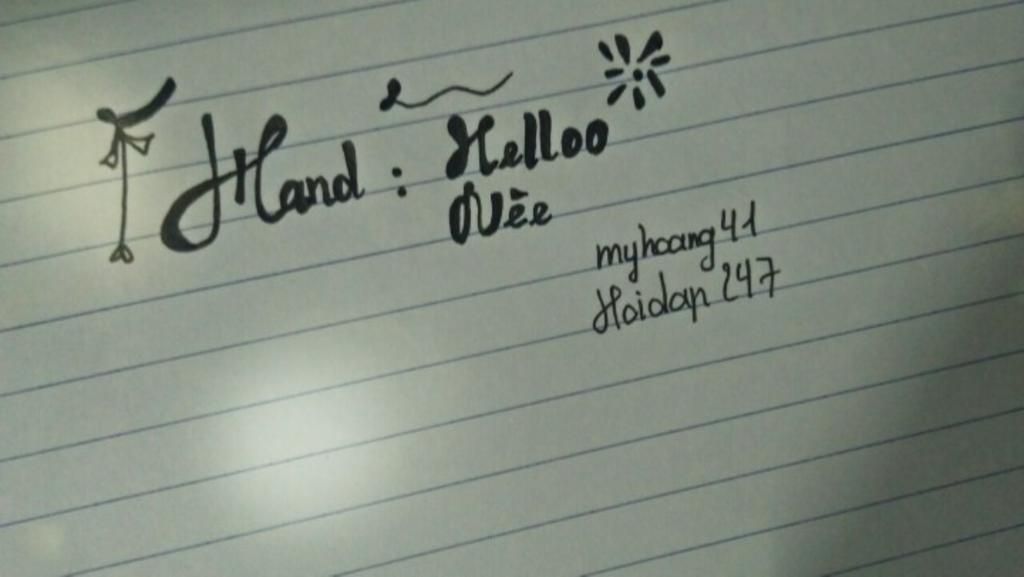 Hand : Helloo
Nèe
myhoang41
Hoidap247